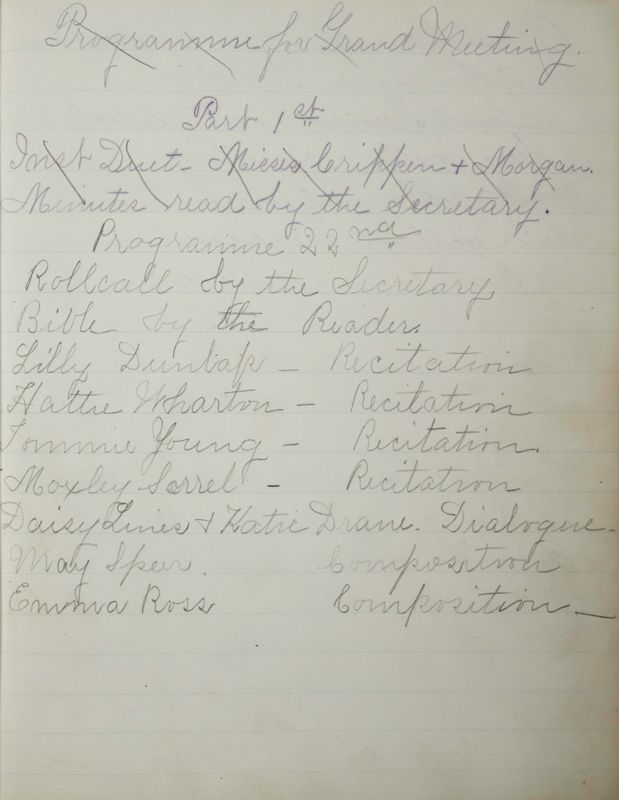 Programme for Grand Meeting.
Part 1st
Inst Duet - Misses Crippen + Morgan.
Minutes read by the Secretary.
Programme 22nd
Rollcall by the Secretary
Bible by the Reader.
Lilly Dunbap - Recitation
Hattie Wharton - Recitation
Tommie Young - Recitation.
Moxley Sorrel - Recitation
Daisy Lines + Katie Drane. Dialogue -
May Spear. Composition
Emma Ross Composition -